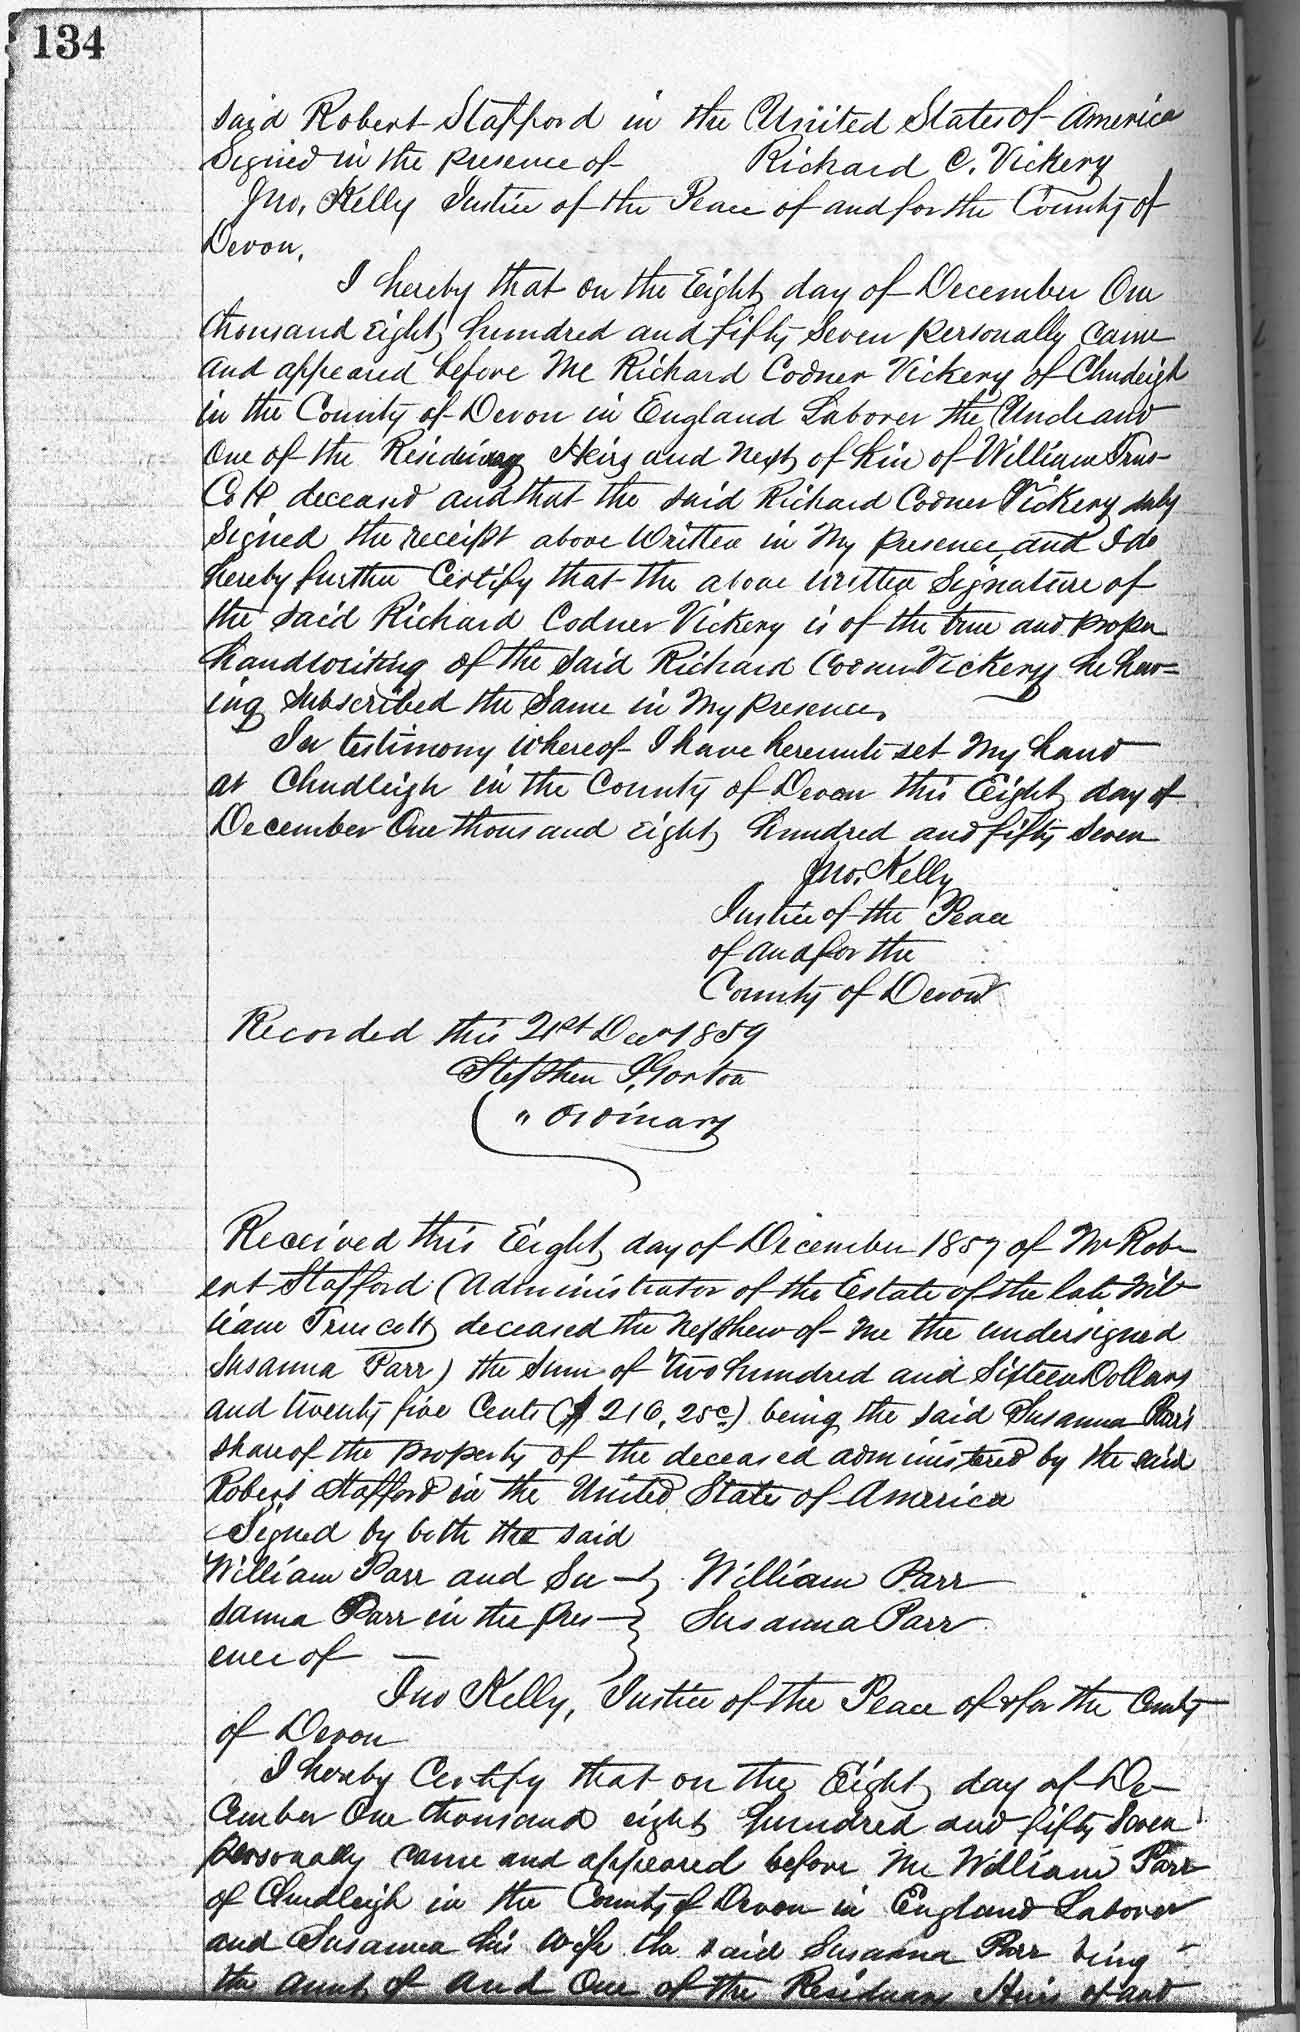 134
said Robert Stafford in the United States of America
Signed in the presence of Richard C. Vickery
Jno. Kelly Justice of the Peace of and for the County of
Devon.
I hereby that on the Eight day of December One
thousand eight hundred and fifty Seven personally came
and appeared before Me Richard Codner Vickery of Chudleigh
in the County of Devon in England Laborer the Uncle and
One of the Residuary Heirs and Next of Kin of William Trus-
Cott deceased and that the said Richard Codner Vickery duly
Signed the receipt above Written in My presence and I do
hereby further Certify that the above written Signature of
the said Richard Codner Vickery is of the true and proper
handwriting of the said Richard Codner Vickery he hav=
ing subscribed the Same in My presence.
In testimony whereof I have hereunto set My hand
at Chudleigh in the County of Devon this Eight day of
December One thousand eight hundred and fifty seven
Jno. Kelly
Justice of the Peace
of and for the
County of Devon
Recorded this 21st Decr 1859
Stephen Gorton
" Ordinary
Received this Eight day of December 1857 of Mr Rob-
ert Stafford (Administrator of the Estate of the late Wil-
liam Truscott deceased the Nephew of me the undersigned
Susanna Parr) the Sum of Two hundred and Sixteen Dollars
and twenty five Cents ($ 216, 25c) being the said Susanna Parr's
share of the property of the deceased administered by the said
Robert Stafford in the United States of America
Signed by both the said
William Parr and Su- } William Parr
sanna Parr in the pres- } Susanna Parr
ence of —
Jno Kelly, Justice of the Peace of & for the County
of Devon
I hereby Certify that on the Eight day of De-
cember One thousand eight hundred and fifty Seven
personally came and appeared before Me William Parr
of Chudleigh in the County of Devon in England Laborer
and Susanna his Wife the said Susanna Parr being
the aunt of and One of the Residuary Heirs of and